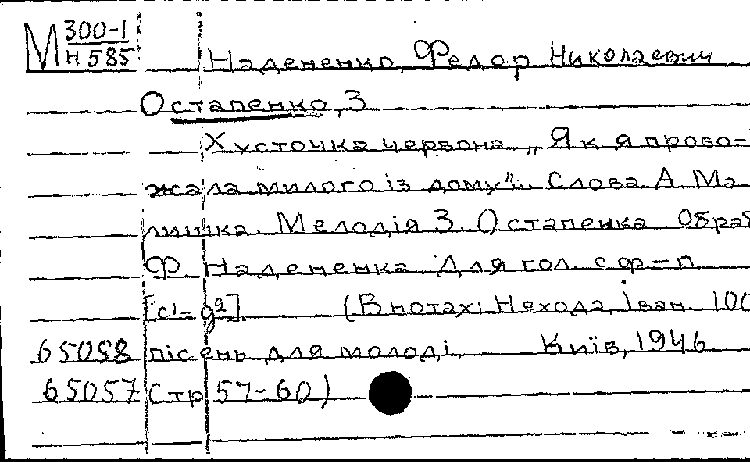 М 300-1
Н 585
Надененко, Федор Николаевич
Остапенко, З.
Хусточка червона „Як я прово-
жала милого із дому". Слова А. Ма-
лишка. Мелодія З. Остапенка Обраб
Ф. Надененка Для гол. с ф-п.
[c¹-g²] (В нотах: Нехода, Іван. 100
65058 пісень для молоді. Київ, 1946
65057 Стр 57-60)